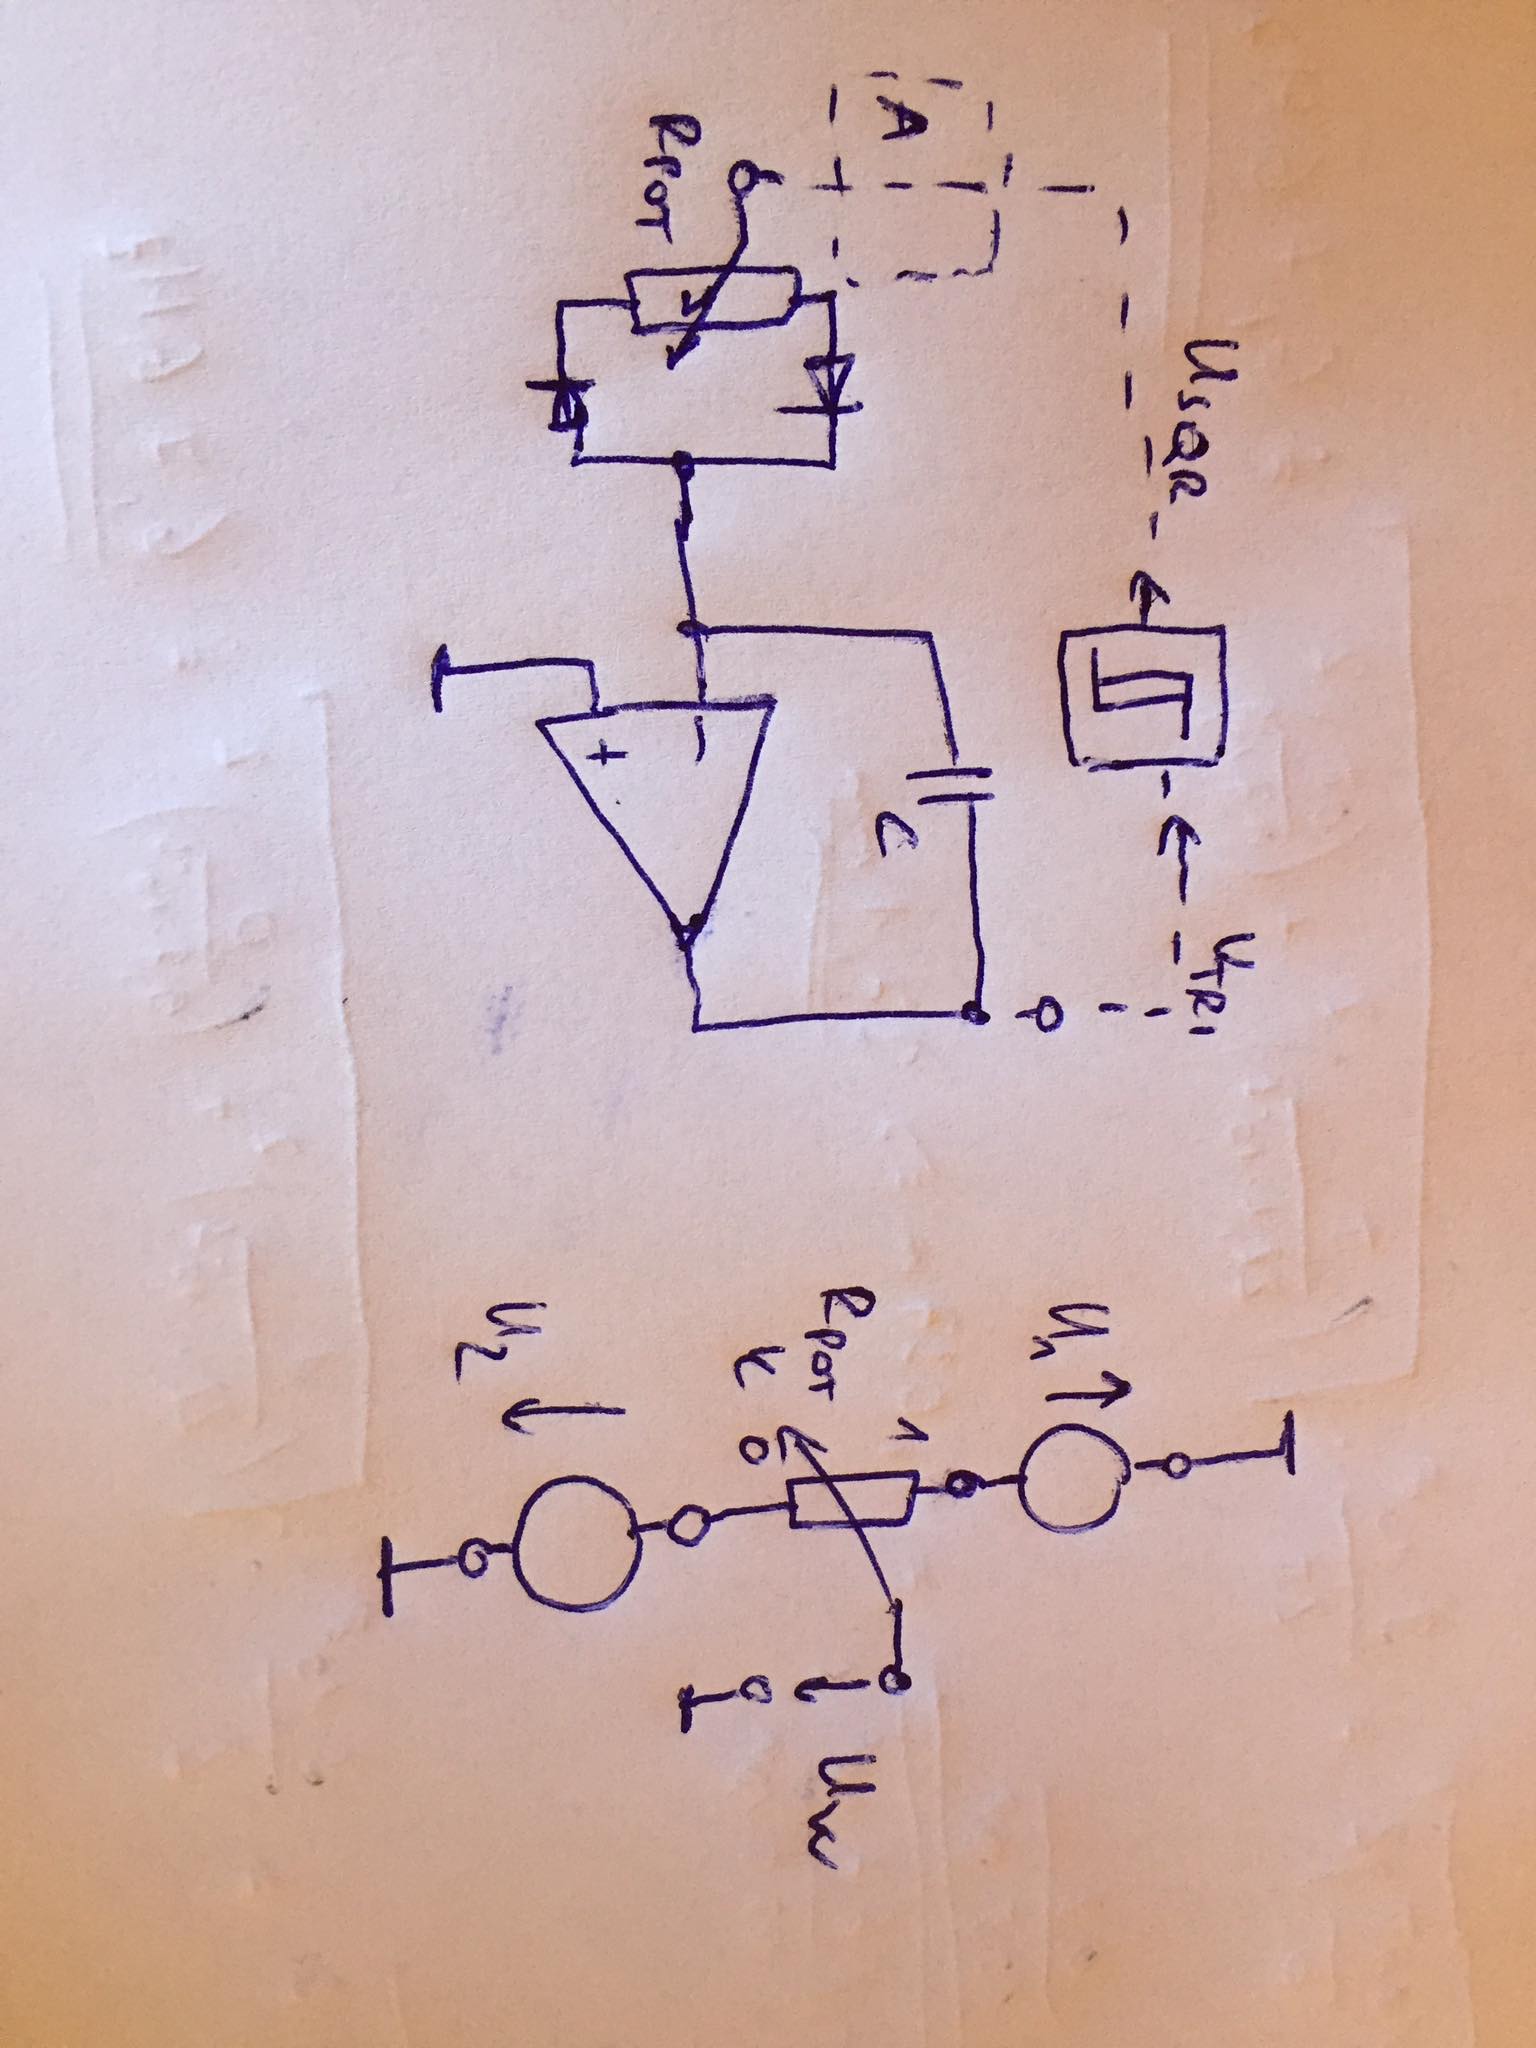 USQR
UTRI
A
C
RPOT
-
+
U1
1
RPOT
K 0
UW
U2